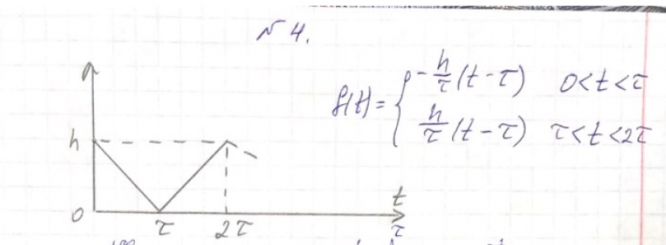 № 4.
f(t) = { -h/τ (t - τ) 0 < t < τ
h/τ (t - τ) τ < t < 2τ
h
0 τ 2τ t
τ